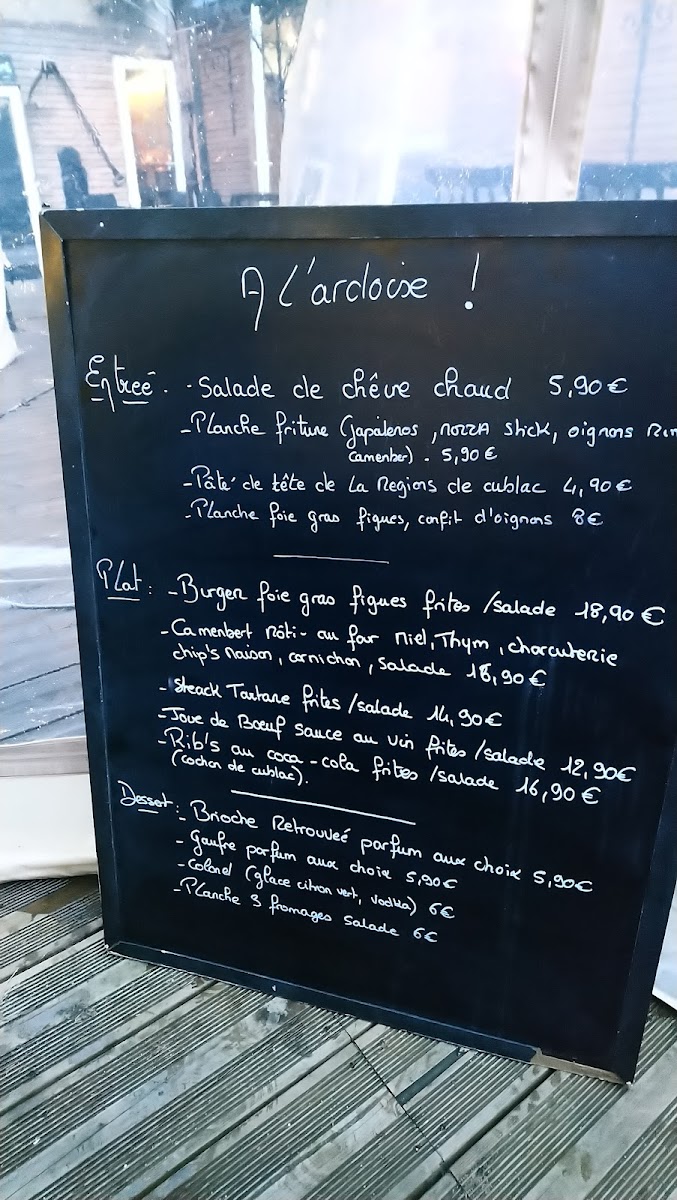 A l'ardoise !
Entreé. - Salade de chêve chaud 5,90€
- Planche friture (Japaleños, mozza stick, oignons
camember). 5,90€
- Pâté de tête de la Region de cublac 4,90€
- Planche foie gras figues, confit d'oignons 8€
Plat : - Burger foie gras figues frites /salade 18,90€
- Camenbert rôti au four miel, Thym, charcuterie
chip's maison, cornichon, salade 18,90€
- Steack Tartare frites /salade 14,90€
- Joue de Boeuf sauce au vin frites /salade 12,90€
- Rib's au coca-cola frites /salade 16,90€
(cochon de cublac).
Dessert : - Brioche Retrouveé parfum aux choix 5,90€
- Gaufre parfum aux choix 5,90€
- Colonel (glace citron vert, vodka) 6€
- Planche 3 fromages salade 6€